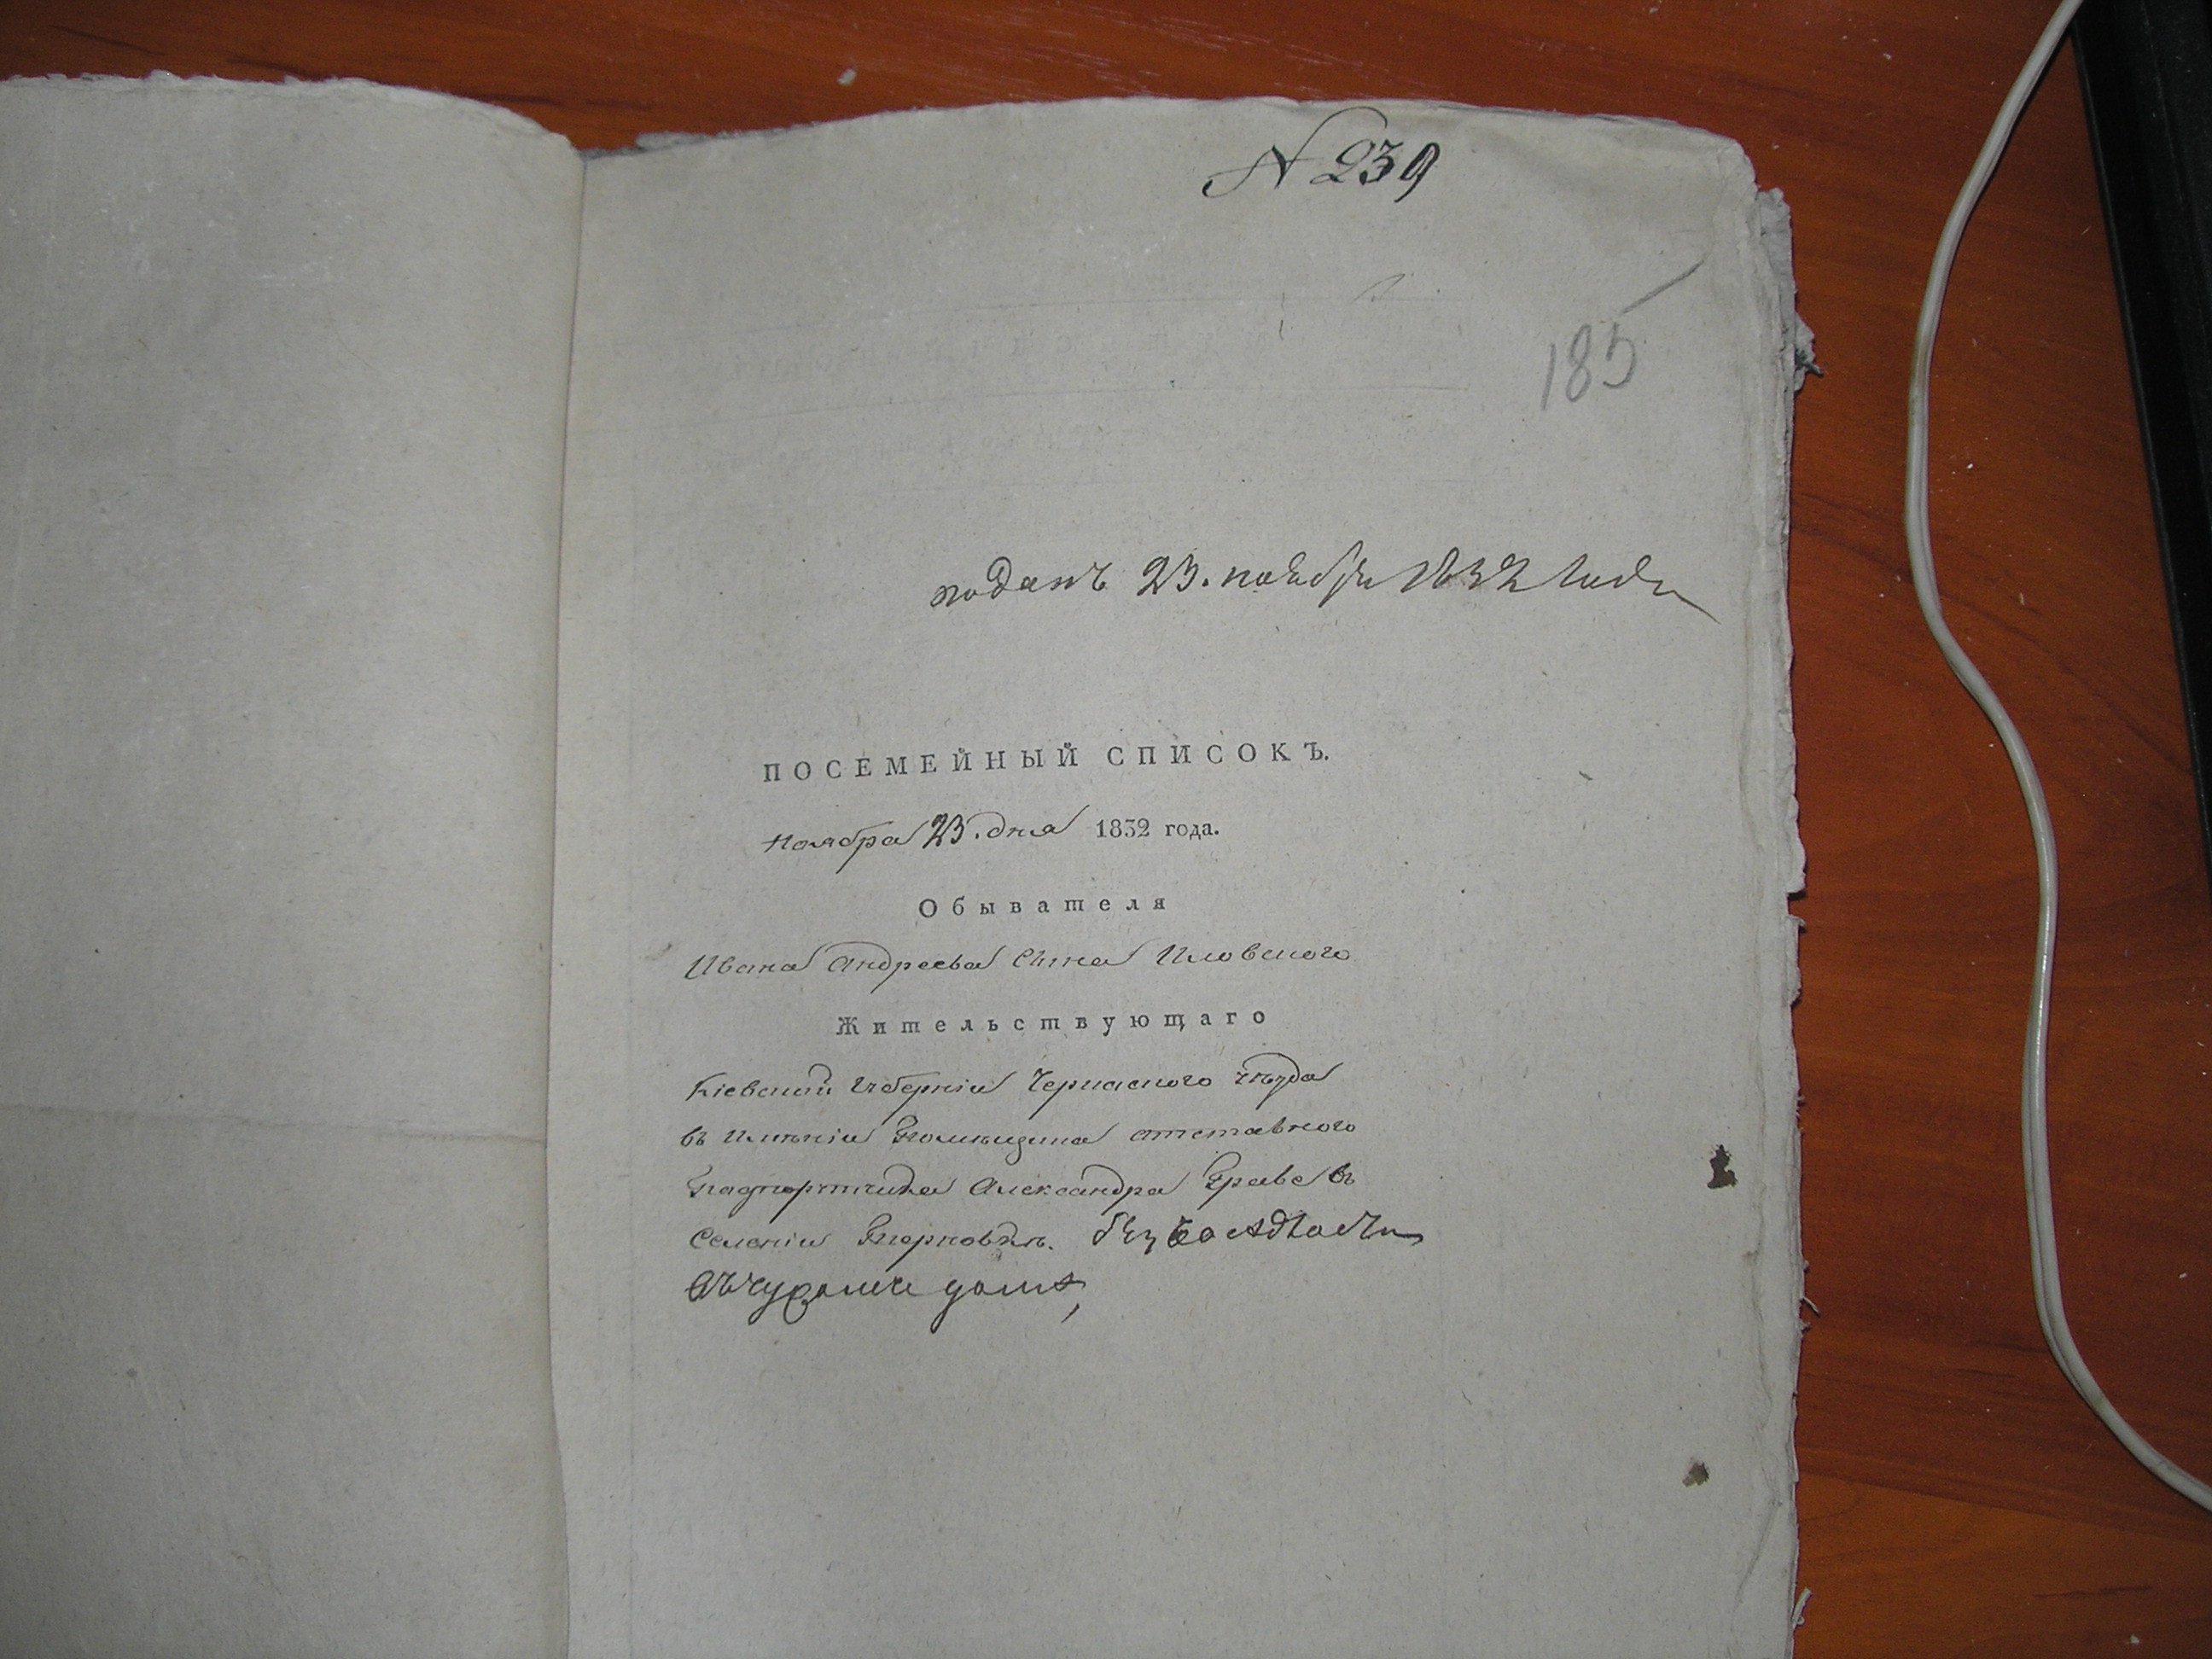 N 239
185
поданъ 23. ноября 1832 года
ПОСЕМЕЙНЫЙ СПИСОКЪ.
Ноября 23. дня 1832 года.
Обывателя
Ивана Андреева Сына Иловского
Жительствующаго
Кіевской Губерніи Черкаского уѣзда
въ имѣніи Помѣщика отставного
Подпоручика Александра Граве въ
Селеніи Терновкѣ. безъ
въ чужомъ доме,